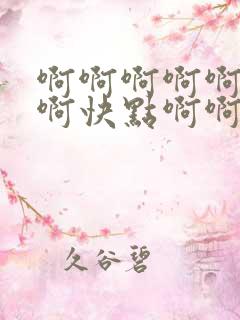 啊啊啊啊啊
啊快點啊啊
久谷碧